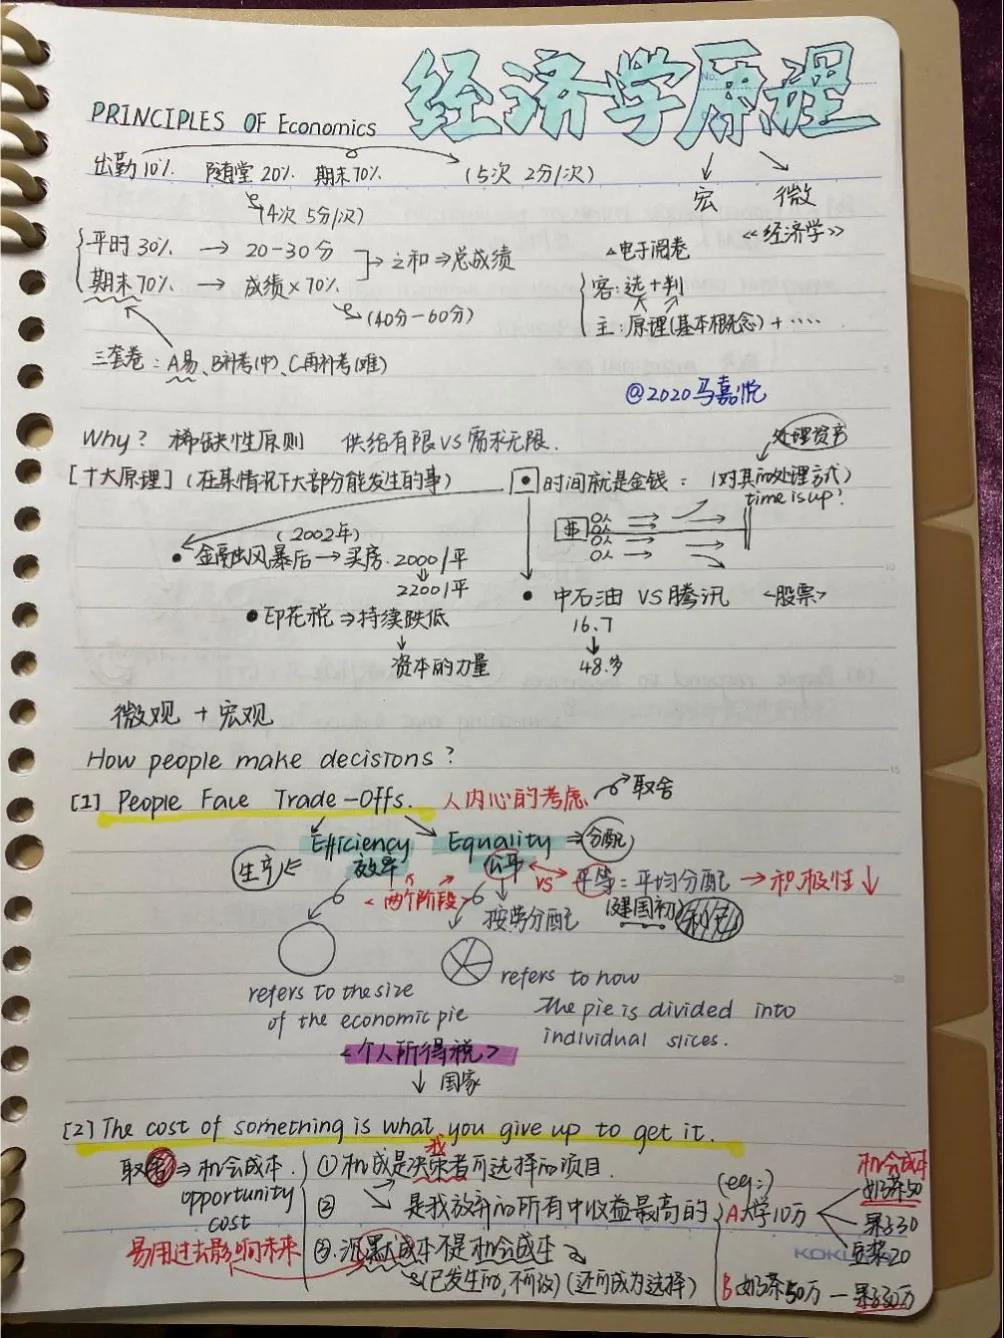 经济学原理
PRINCIPLES OF Economics
出勤10% 随堂20% 期末70% (5次 2分/次)
(4次 5分/次)
宏 微
《经济学》
平时30% → 20-30分
期末70% → 成绩×70%
之和⇒总成绩
(40分-60分)
△电子阅卷
客:选+判
主:原理(基本概念)+····
三套卷:A易、B补考(中)、C再补考(难)
@2020马嘉悦
Why? 稀缺性原则 供给有限VS需求无限.
处理资产
[十大原理](在某情况下大部分能发生的事)
时间就是金钱:(对其的处理方式)
time is up?
(2002年)
• 金融风暴后→买房.2000/平
↓
2200/平
• 印花税⇒持续跌低
↓
资本的力量
• 中石油 VS腾讯 <股票>
16.7
↓
48.岁
微观 + 宏观
How people make decisions?
[1] People Face Trade-Offs. 人内心的考虑 取舍
Efficiency Equality ⇒分配
生产⇐ 效率 公平 VS 平等:平均分配→积极性↓
<两个阶段>
按劳分配
(建国初)
refers to the size
of the economic pie
refers to how
the pie is divided into
individual slices.
<个人所得税>
↓ 国家
[2] The cost of something is what you give up to get it.
取舍⇒机会成本
opportunity
cost
易用过去影响未来
我
①机成是决策者可选择的项目.
② 是我放弃的所有中收益最高的
③.沉默成本不是机会成本
(已发生的,不可改)(还可成为选择)
(eg:)
机会成本
A大学10万
奶茶50
果子30
豆浆20
KOKUYO
B奶茶50万—果子30万